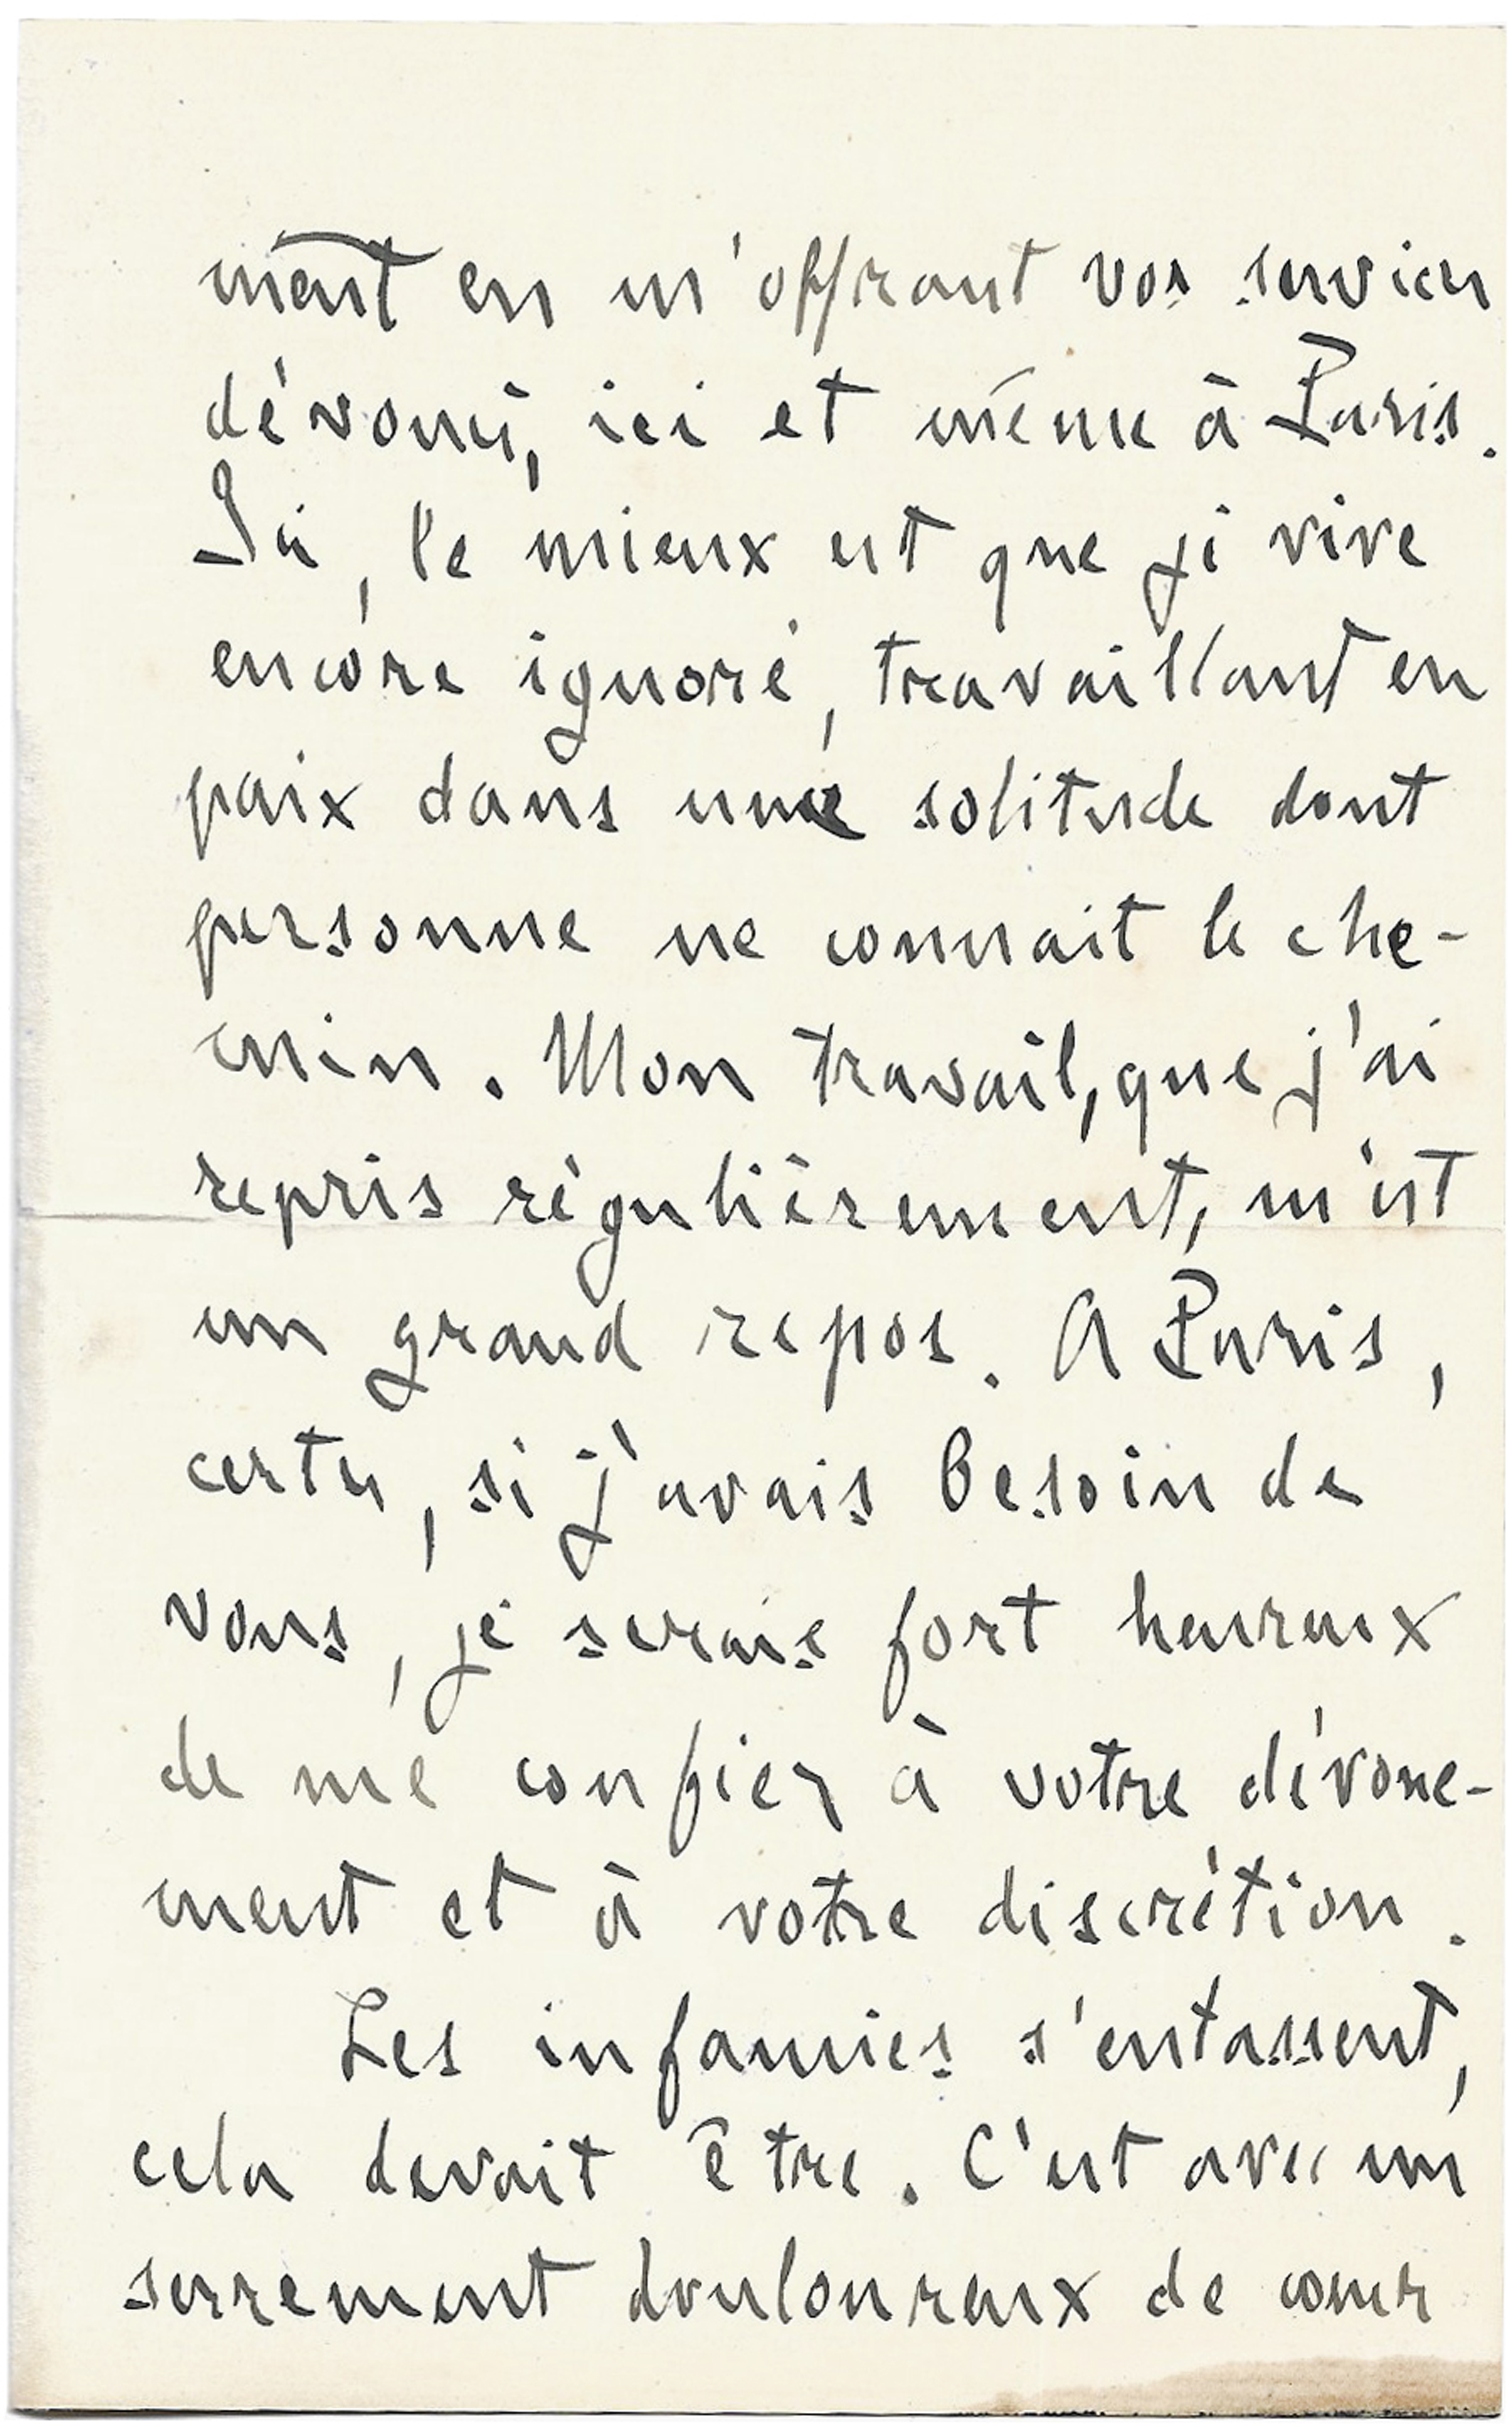 ment en m'offrant vos services
dévoués, ici et même à Paris.
Ici, le mieux est que je vive
encore ignoré, travaillant en
paix dans une solitude dont
personne ne connait le che-
min. Mon travail, que j'ai
repris régulièrement, m'est
un grand repos. A Paris,
certes, si j'avais besoin de
vous, je serais fort heureux
de me confier à votre dévoue-
ment et à votre discrétion.
Les infamies s'entassent,
cela devait être. C'est avec un
serrement douloureux de cœur